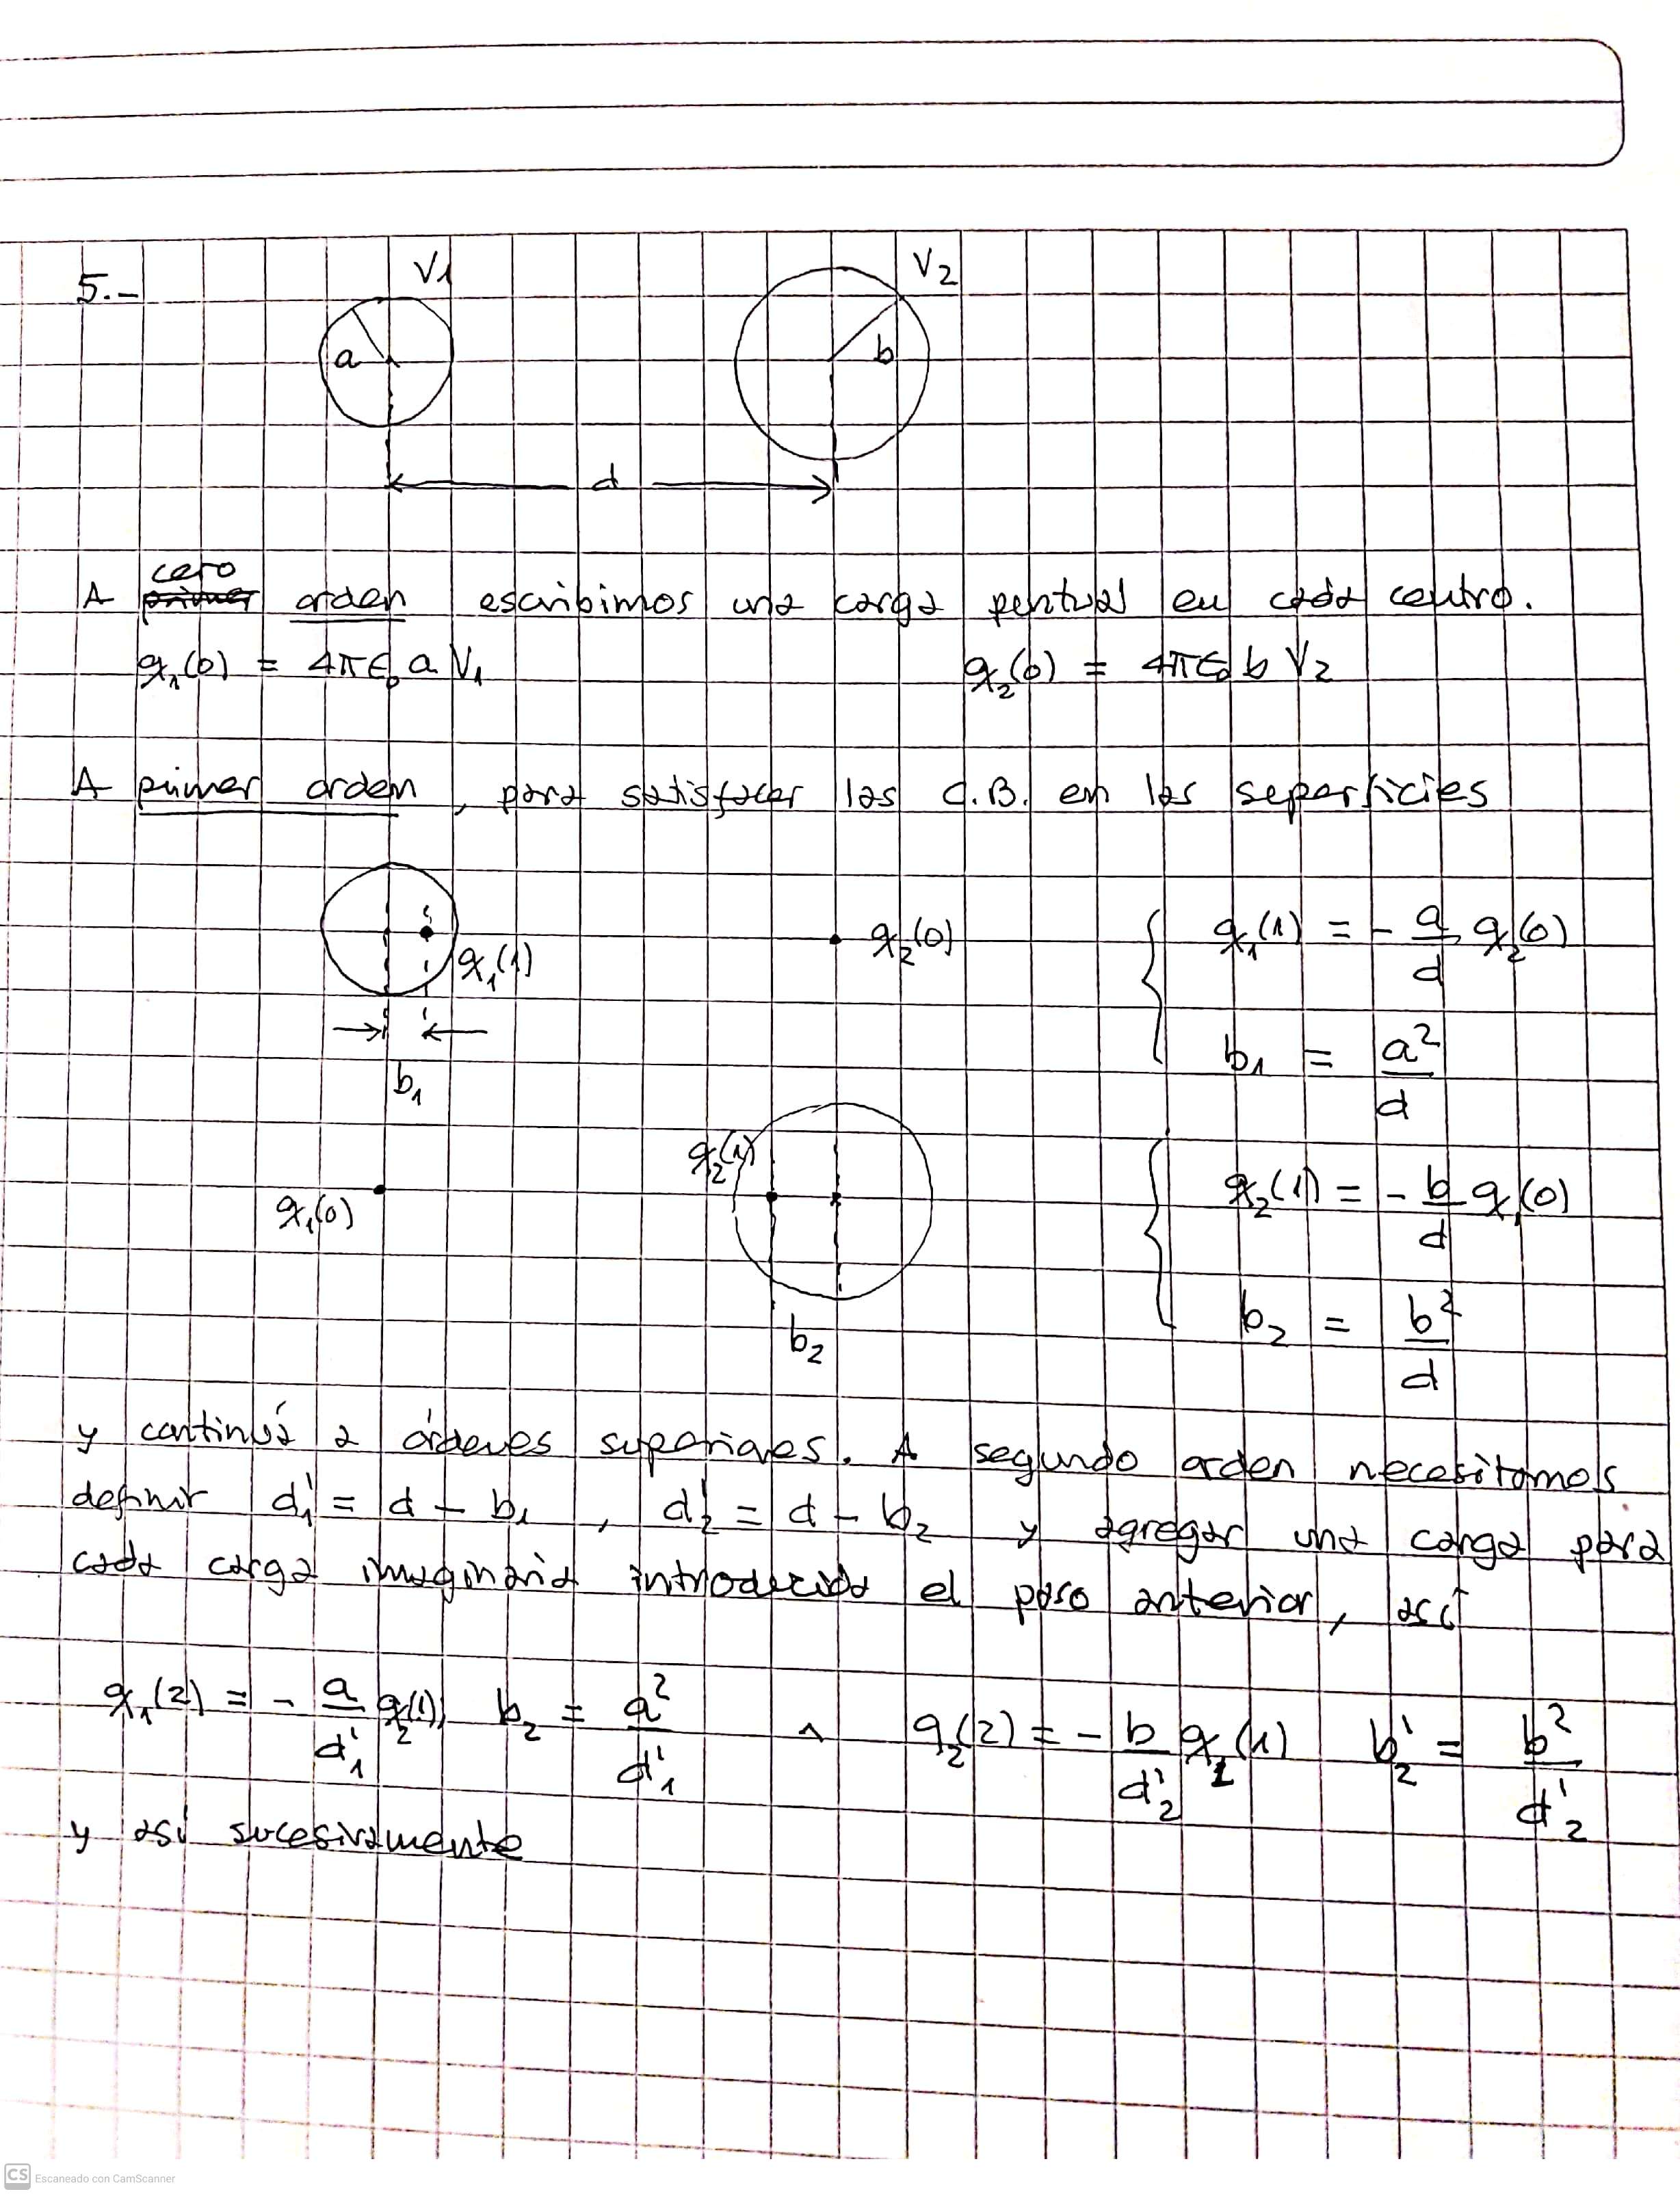 5.-
V1
V2
a
b
d
A cero orden escribimos una carga pentual en cada centro.
q₁(0) = 4πϵ₀ a V₁ q₂(0) = 4πϵ₀ b V₂
A primer orden, para satisfacer las C.B. en las seperficies
q₁(1)
q₂(0)
q₁(1) = - a/d q₂(0)
b₁
b₁ = a²/d
q₂(1)
q₁(0)
q₂(1) = - b/d q₁(0)
b₂
b₂ = b²/d
y continúa a órdenes superiores. A segundo orden necesitamos
definir d₁' = d - b₁ , d₂' = d - b₂ y agregar una carga para
cada carga imaginaria introducida el paso anterior, así
q₁(2) = - a/d₁' q₂(1), b₂ = a²/d₁' ∧ q₂(2) = - b/d₂' q₁(1) b₂' = b²/d₂'
y así sucesivamente
CS Escaneado con CamScanner